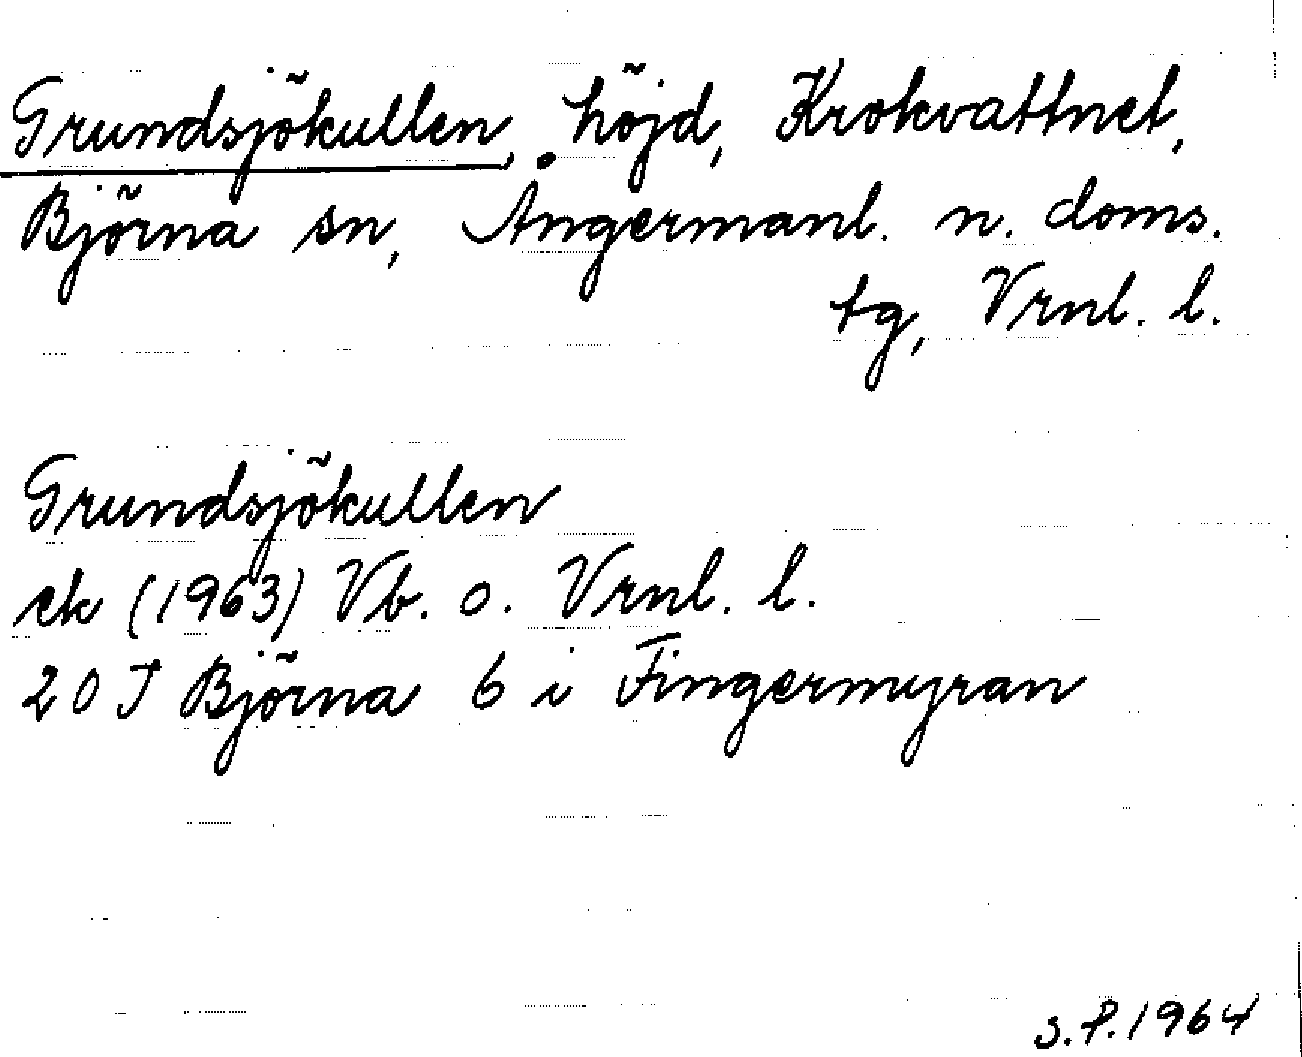 Grundsjökullen, höjd, Krokvattnet,
Björna sn, Ångermanl. n. doms.
tg, Vrnl. l.
Grundsjökullen
ek (1963) Vb. o. Vrnl. l.
20 J Björna 6 i Fingermyran
S.P. 1964